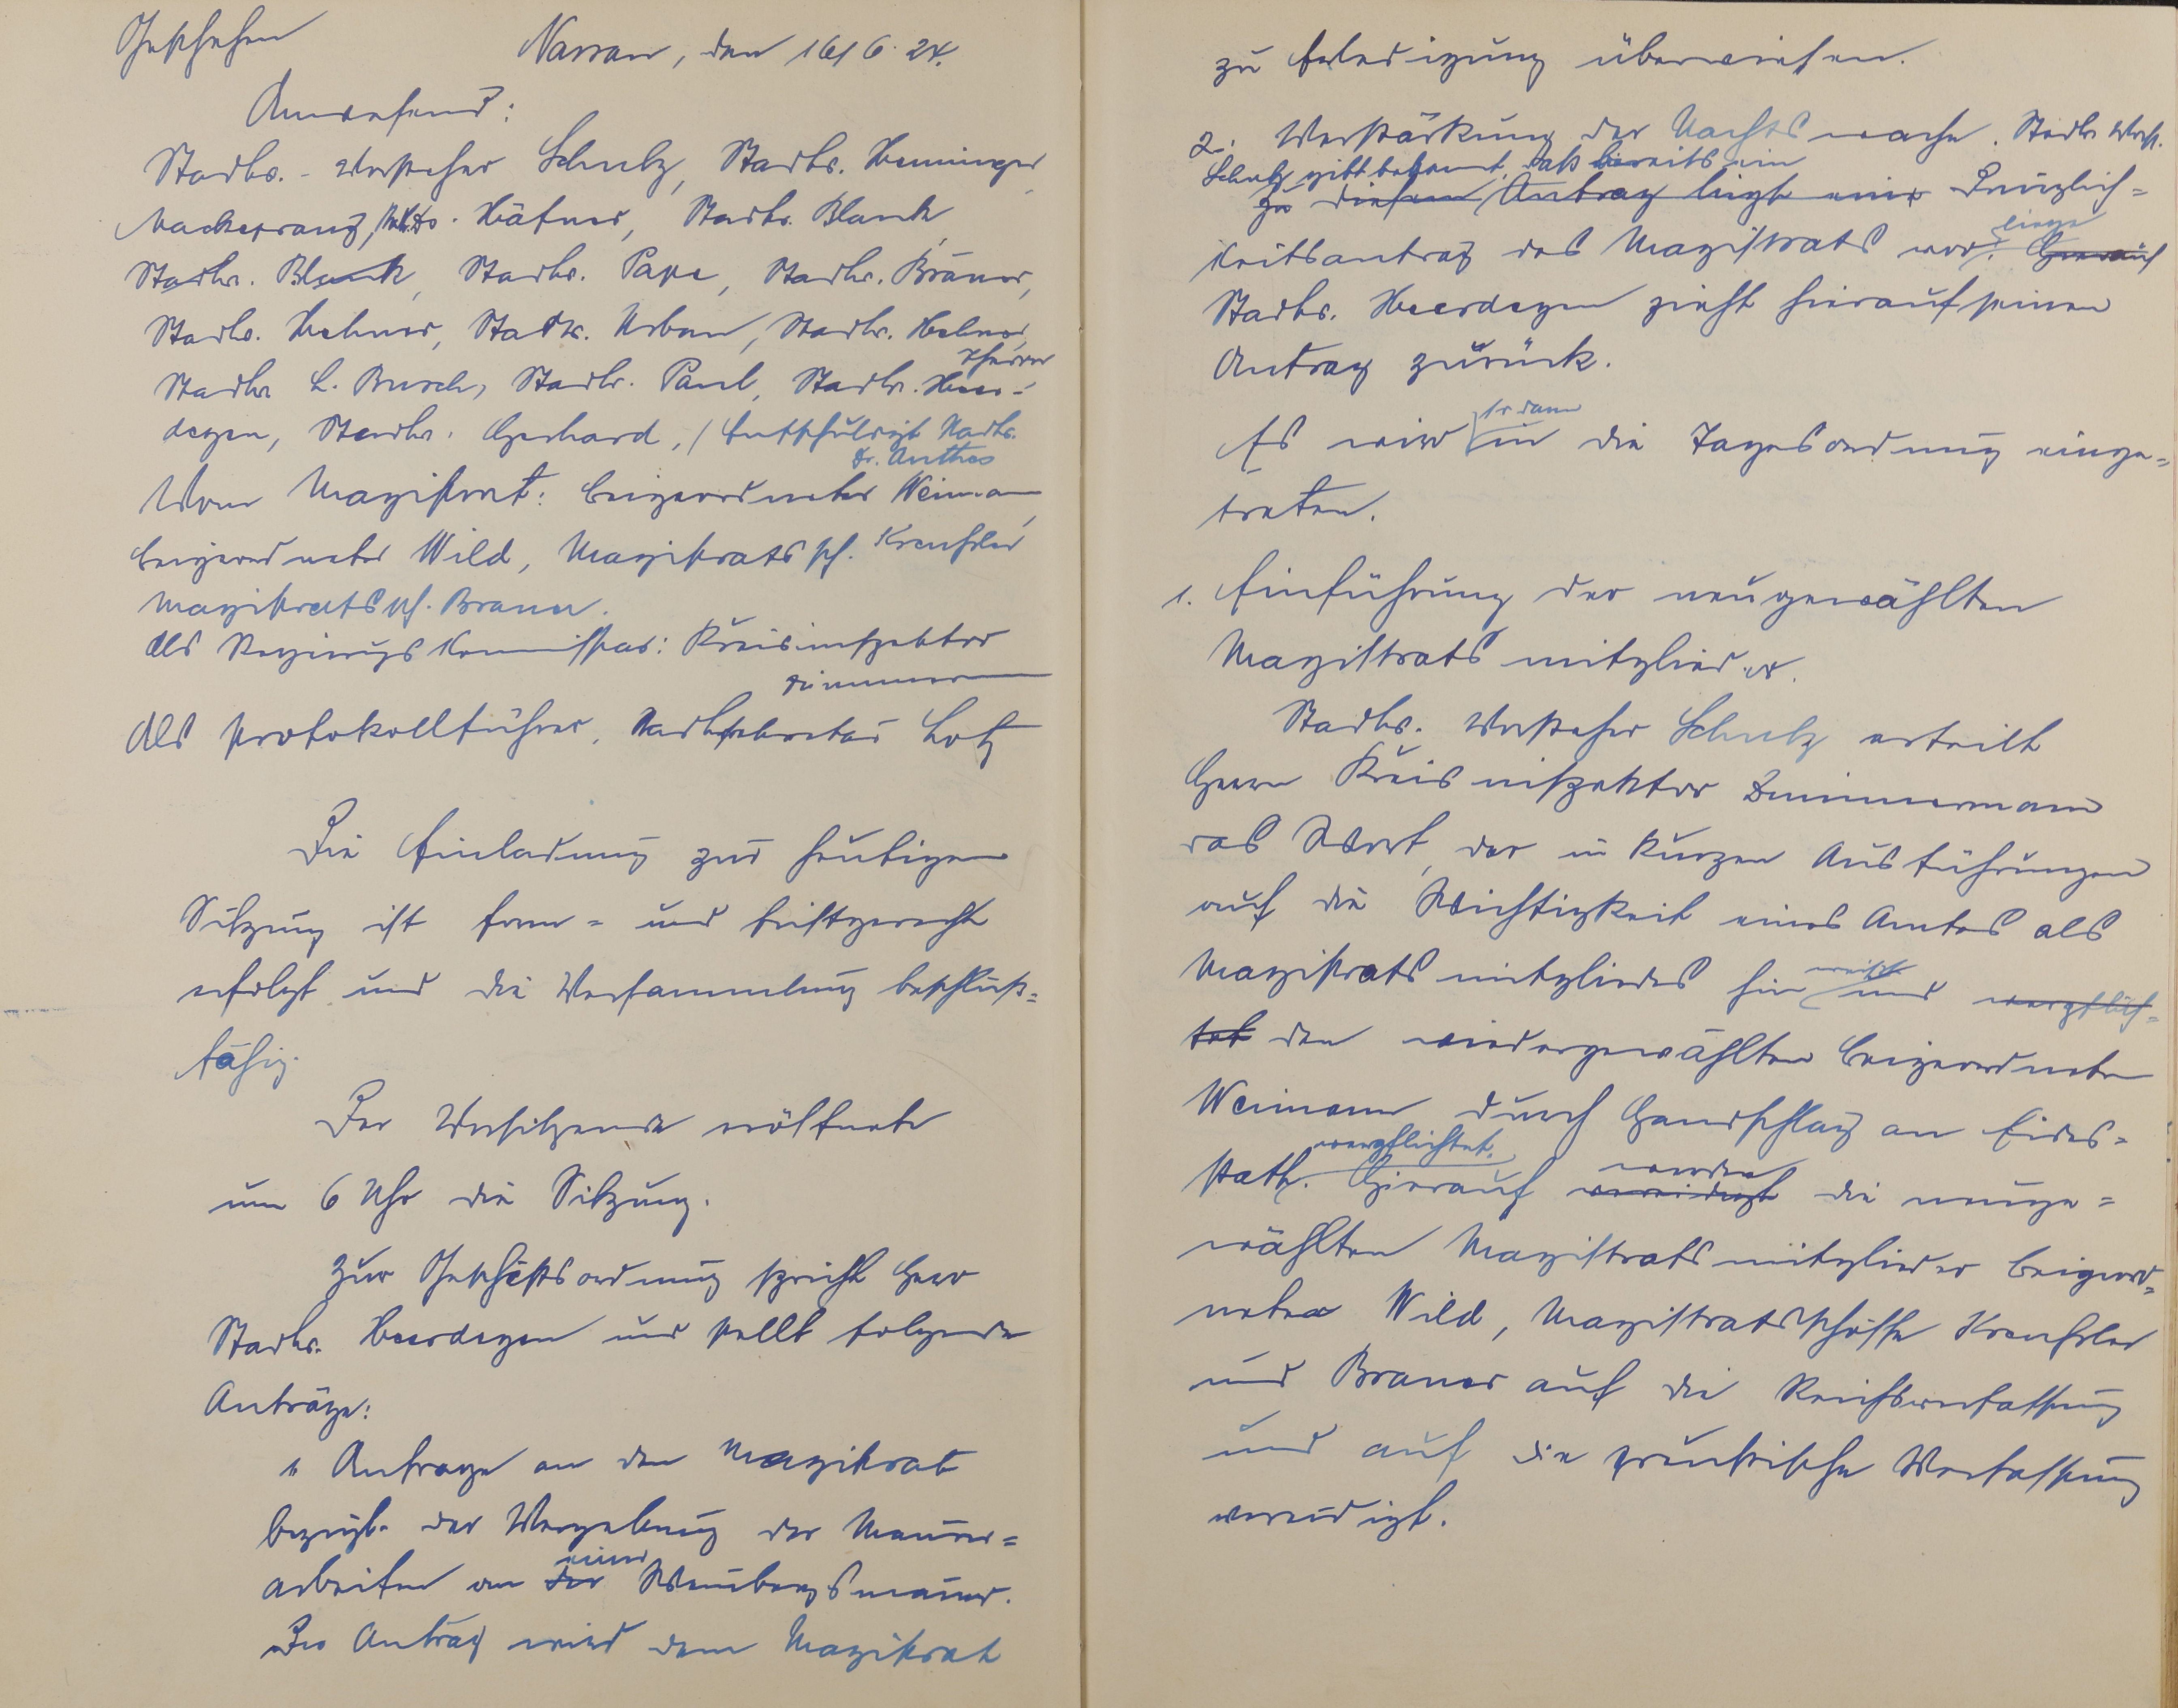 Geschehen Nassau, den 16/6. 24.
Anwesend:
Stadtv.-Vorsteher Schulz, Stadtv. Henninger,
Mackeprang, Stadtv. Häfner, Stadtv. Blank,
Stadtv. Blank, Stadtv. Pape, Stadtv. Bräuer,
Stadtv. Hehner, Stadtv. Urban, Stadtv. Helmer,
Stadtv. L. Busch, Stadtv. Paul, Stadtv. Pfarrer Heer-
degen, Stadtv. Gerhard, / Entschuldigt Stadtv.
Dr. Anthes
Vom Magistrat: Beigeordneter Weimann,
Beigeordneter Wild, Magistratssch. Kreussler
Magistratssch. Brauer.
Als Regierungskommissar: Kreisinspektor
Zimmermann
Als Protokollführer, Stadtsekretär Lotz
Die Einladung zur heutigen
Sitzung ist form- und fristgerecht
erfolgt und die Versammlung beschluß-
fähig.
Der Vorsitzende eröffnete
um 6 Uhr die Sitzung.
Zur Geschäftsordnung spricht Herr
Stadtv. Heerdegen und stellt folgende
Anträge:
1. Anfrage an den Magistrat
bezügl. der Vergebung der Maurer-
arbeiten an der einer Weinbergsmauer.
Der Antrag wird dem Magistrat
zu Erledigung überwiesen.
2. Verstärkung der Nachtswache. Stadtv. Vorst.
Schulz gibt bekannt, daß bereits ein
Zu diesem Antrag liegt ein Dringlich-
keitsantrag des Magistrats vorliege. Hierauf
Stadtv. Heerdegen zieht hierauf seinen
Antrag zurück.
Es wird sodann in die Tagesordnung einge-
treten.
1. Einführung der neugewählten
Magistratsmitglieder.
Stadtv. Vorsteher Schulz erteilt
Herrn Kreisinspektor Zimmermann
das Wort, der in kurzen Ausführungen
auf die Wichtigkeit eines Amtes als
Magistratsmitgliedes hin weist und verpflich-
tet den wiedergewählten Beigeordneten
Weimann durch Handschlag an Eides-
statt verpflichtet. Hierauf vereidigt werden die neuge-
wählten Magistratsmitglieder Beigeord-
neter Wild, Magistratsschöffe Kreussler
und Brauer auf die Reichsverfassung
und auf die preußische Verfassung
vereidigt.